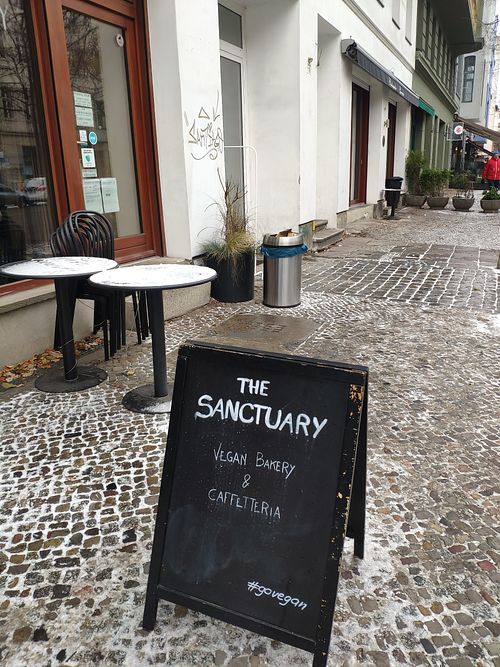 THE
SANCTUARY
VEGAN BAKERY
&
CAFFETTERIA
#govegan